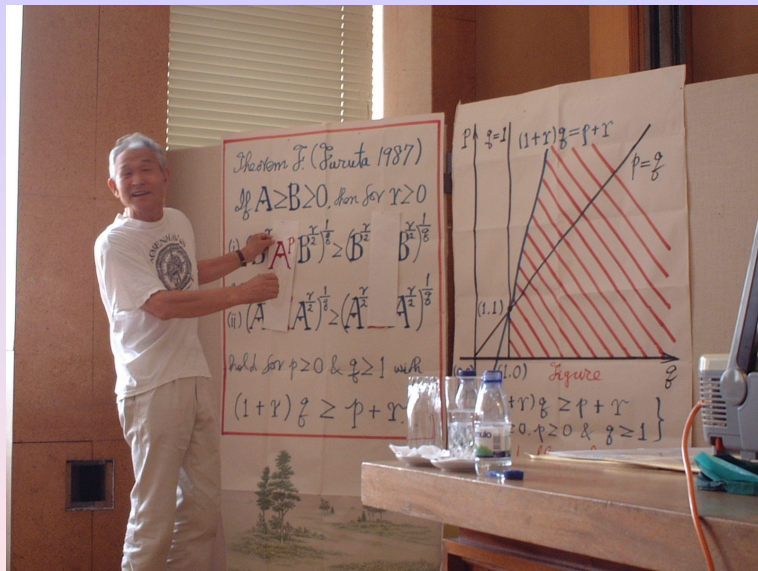 Theorem F. (Furuta 1987)
If A≥B≥0, then for r≥0
(i) (B^{r/2} A^p B^{r/2})^{1/q} ≥ (B^{r/2} B^{r/2})^{1/q}
(ii) (A^{r/2} A^{r/2})^{1/q} ≥ (A^{r/2} A^{r/2})^{1/q}
hold for p≥0 & q≥1 with
(1+r)q ≥ p+r.
p q=1 (1+r)q=p+r
p=q
(1.1)
(1.0) q
Figure
+r)q ≥ p+r
≥0, p≥0 & q≥1 }